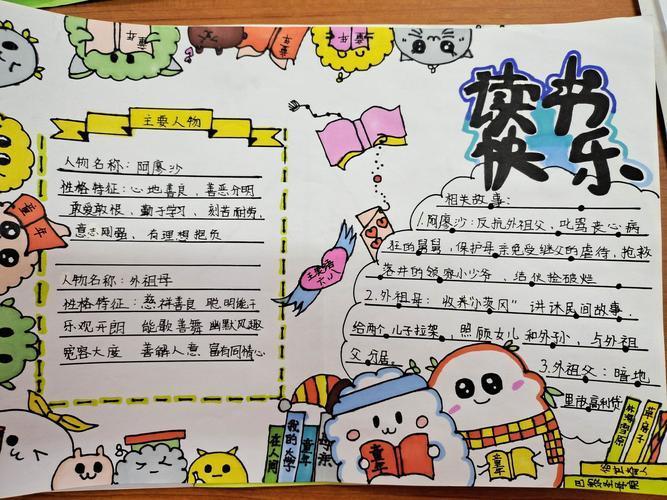 读书
快乐
主要人物
人物名称：阿廖沙
性格特征：心地善良，善恶分明
敢爱敢恨，勤于学习、刻苦耐劳，
意志刚强，有理想抱负
人物名称：外祖母
性格特征：慈祥善良 聪明能干
乐观开朗 能歌善舞 幽默风趣
宽容大度 善解人意 富有同情心
相关故事：
1.阿廖沙：反抗外祖父，叱骂丧心病
狂的舅舅，保护母亲免受继父的虐待，抢救
落井的领家小少爷，结伙捡破烂
2.外祖母：收养“小茨冈”讲述民间故事，
给两个儿子拉架，照顾女儿和外孙，与外祖
父分居。
3.外祖父：暗地
里放高利贷
童年
童年
童年
在人间
我的大学
童年
母亲
童年
童年
林海雪原
草房子
俗世奇人